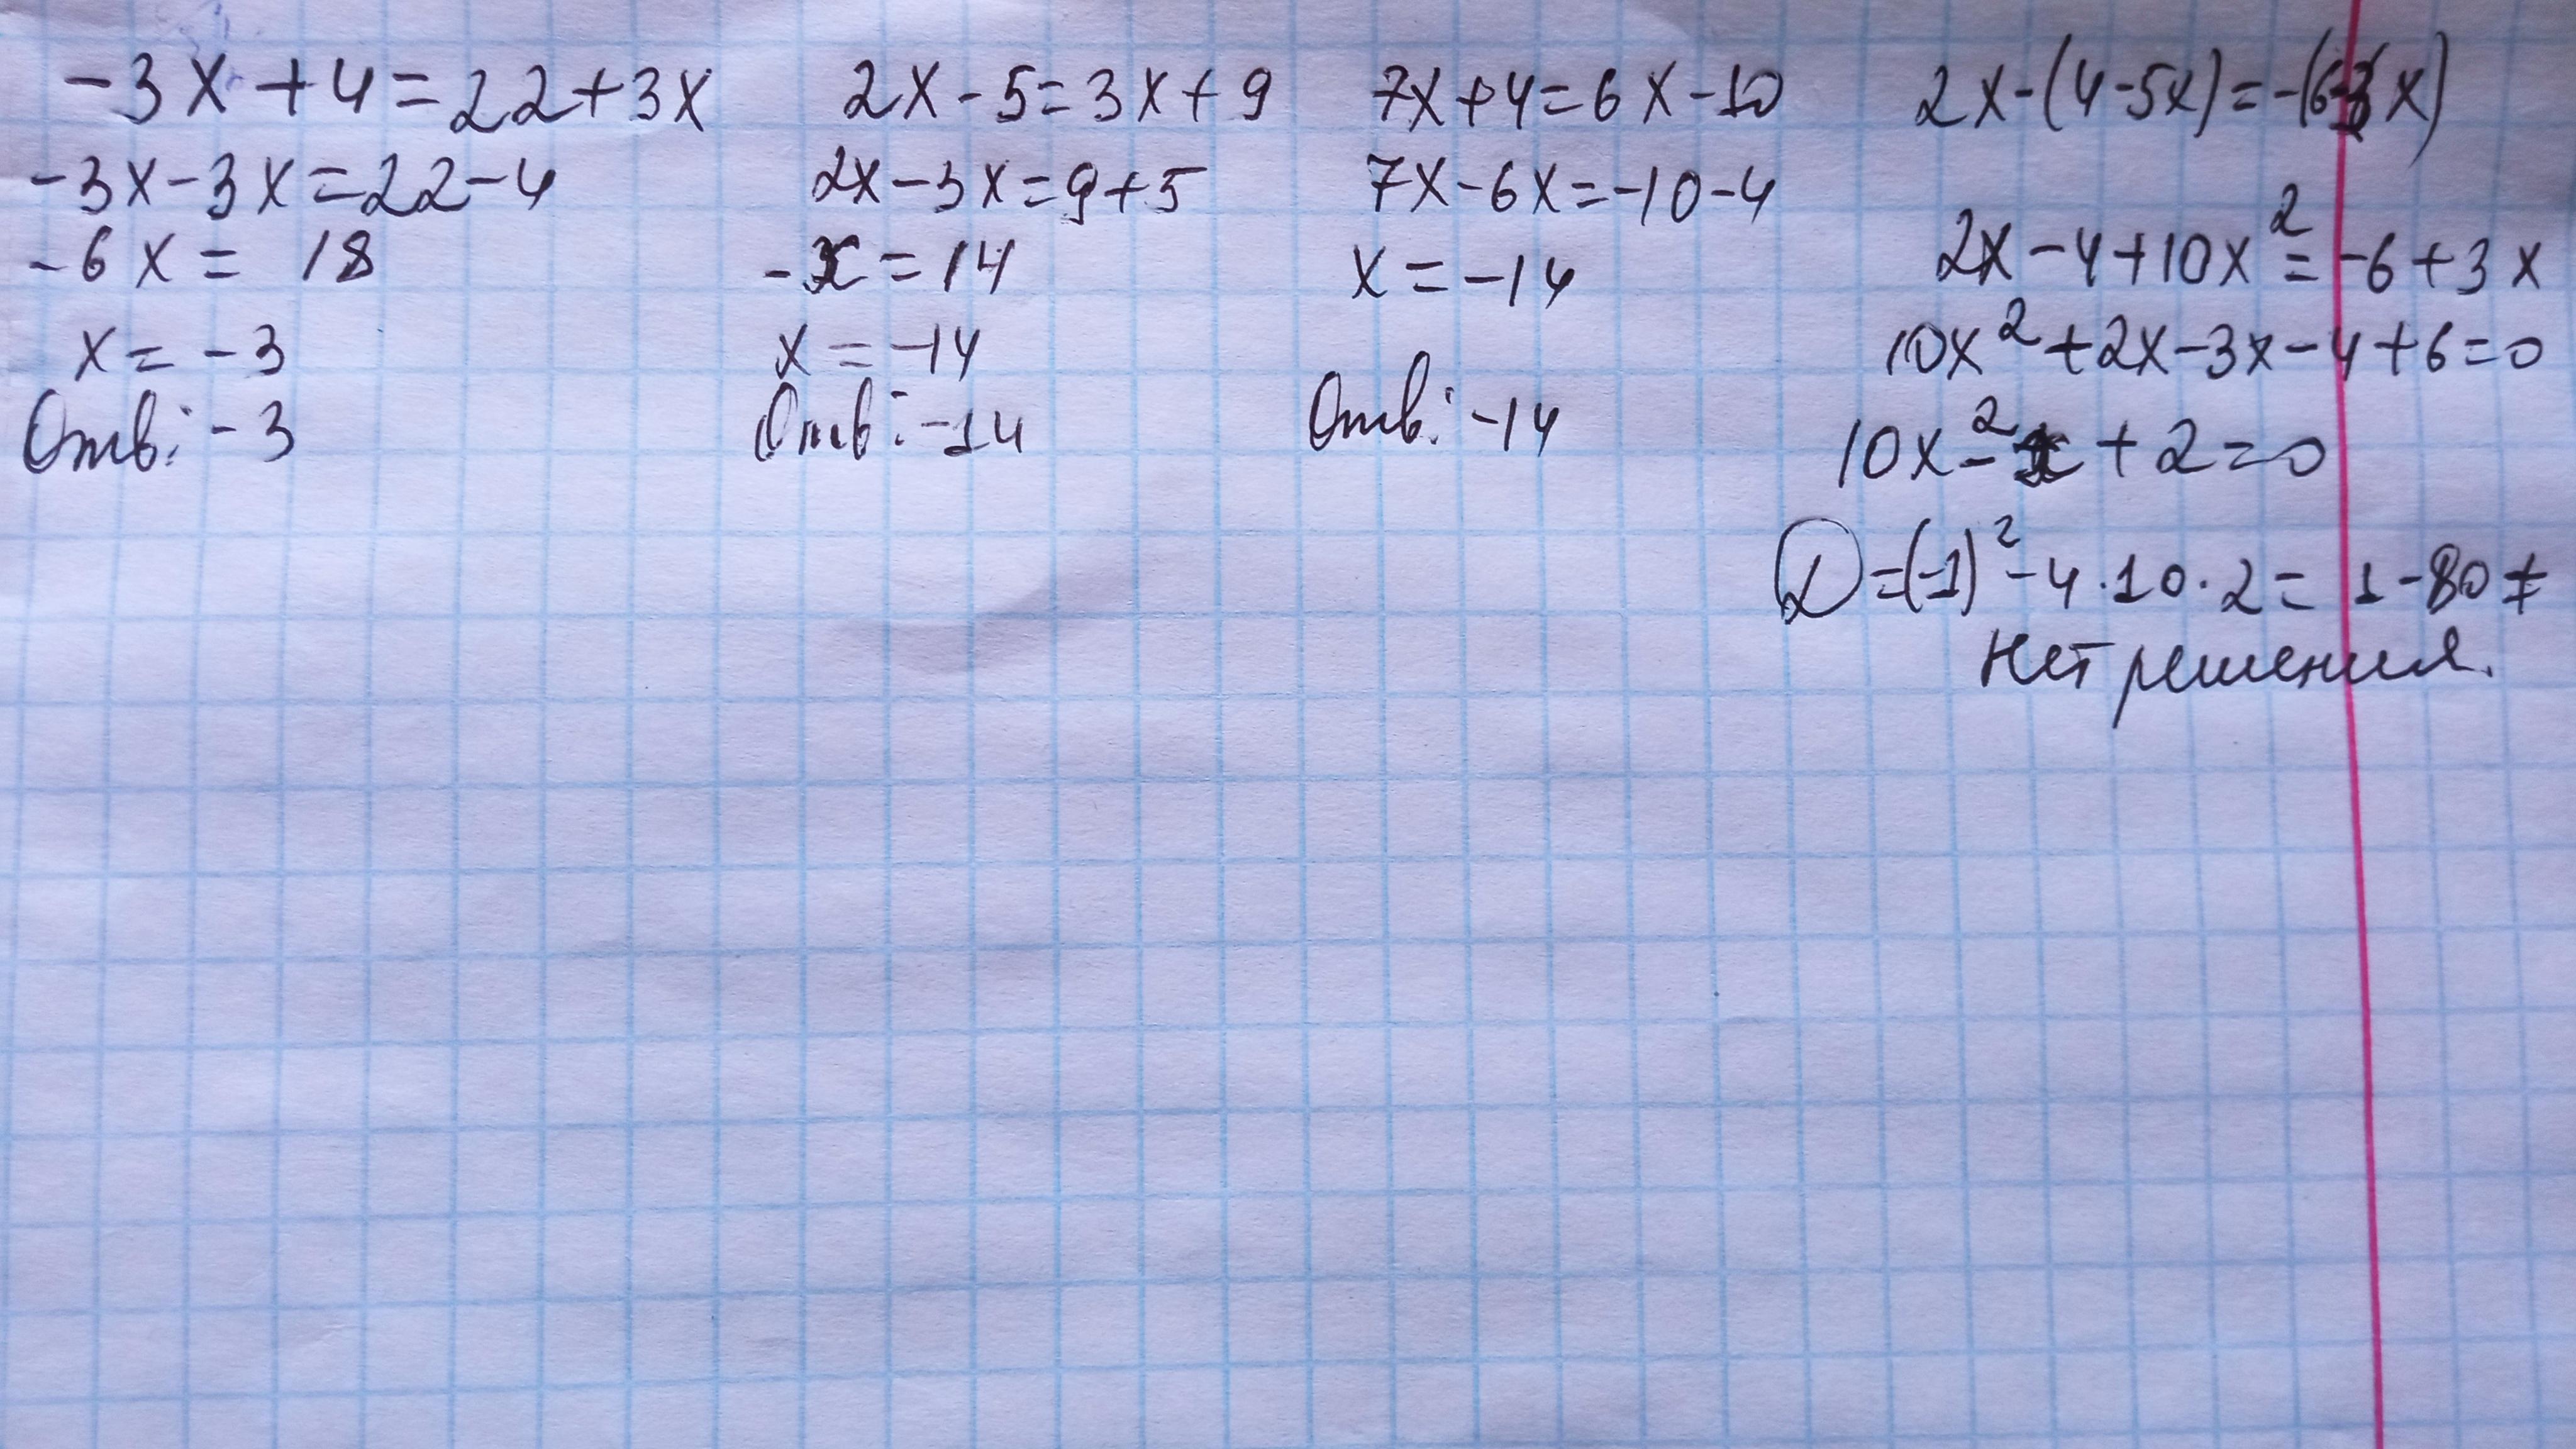 -3x+4=22+3x
-3x-3x=22-4
-6x= 18
x=-3
Отв: -3
2x-5=3x+9
2x-3x=9+5
-x=14
x=-14
Отв: -14
7x+4=6x-10
7x-6x=-10-4
x=-14
Отв: -14
2x-(4-5x)=-(6-3x)
2x-4+10x²=-6+3x
10x²+2x-3x-4+6=0
10x²-x+2=0
D=(-1)²-4·10·2=1-80≠
Нет решения.